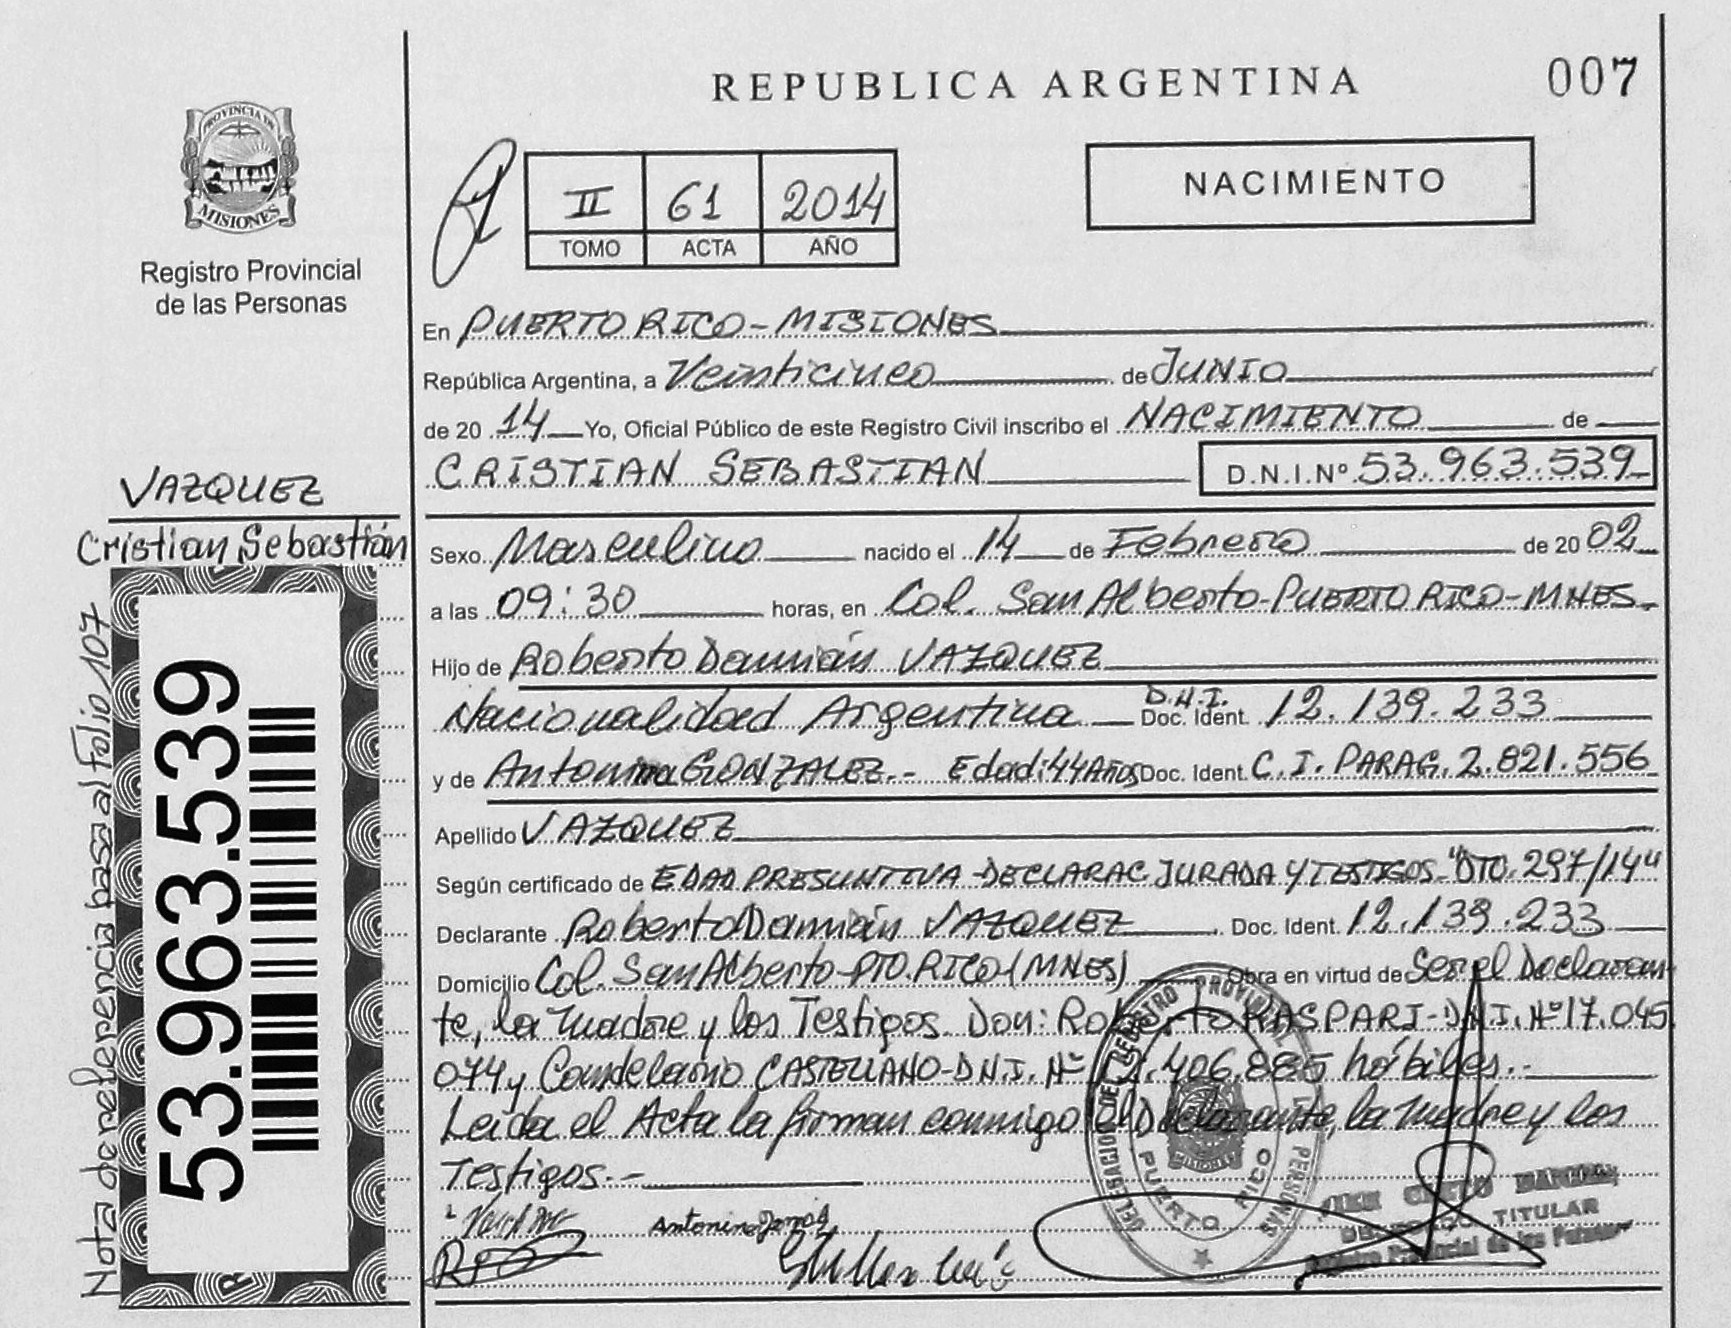 REPUBLICA ARGENTINA
007
PROVINCIA DE
MISIONES
Registro Provincial
de las Personas
II 61 2014
TOMO ACTA AÑO
NACIMIENTO
En PUERTO RICO - MISIONES
República Argentina, a Veinticinco de JUNIO
de 20 14 Yo, Oficial Público de este Registro Civil inscribo el NACIMIENTO de
CRISTIAN SEBASTIAN D.N.I.Nº 53.963.539
VAZQUEZ
Cristian Sebastián
Sexo Masculino nacido el 14 de Febrero de 20 02
a las 09:30 horas, en Col. San Alberto - PUERTO RICO - MNES.
Hijo de Roberto Damián VAZQUEZ
Nacionalidad Argentina D.N.I. Doc. Ident. 12.139.233
y de Antonina GONZALEZ.- Edad: 44 AÑOS Doc. Ident. C.I. PARAG. 2.821.556
Apellido VAZQUEZ
Según certificado de EDAD PRESUNTIVA - DECLARAC. JURADA Y TESTIGOS - "DTO. 297/14"
Declarante Roberto Damián VAZQUEZ Doc. Ident. 12.139.233
Domicilio Col. San Alberto - PTO. RICO (MNES) Obra en virtud de Ser el Declaran-
te, la madre y los Testigos Don: Roberto RASPARI - D.N.I. Nº 17.045.
074 y Candelario CASTELLANO - D.N.I. Nº .406.885 hábiles.-
Leída el Acta la firman conmigo el Declarante, la madre y los
Testigos.-
Antonina
DELEGACION DEL REGISTRO PROVINCIAL DE LAS PERSONAS
MISIONES
PUERTO RICO
DELEGADO TITULAR
Registro Provincial de las Personas
53.963.539
Nota de referencia pasa al Folio 107